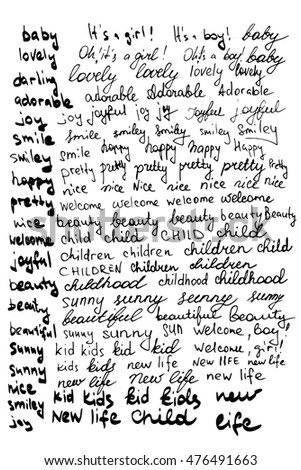 baby It's a girl! It's a boy! baby
lovely Oh! it's a girl! Oh! it's a boy! baby
darling lovely lovely lovely lovely
adorable adorable Adorable Adorable
joy joy joyful joy joy Joyful joyful
smile smile, smiley, Smiley smiley Smiley
smiley Smile happy happy happy Happy
happy pretty pretty pretty pretty pretty Pretty
pretty nice nice Nice nice nice nice nice
nice welcome welcome welcome welcome
welcome beauty beauty beauty beauty Beauty
joyful child child CHILD child
beauty children children children child
beauty CHILDREN children children
beautiful childhood childhood childhood
sunny sunny sunny sunny sunny
sunny beautiful beautiful Beauty
nice sunny sunny sun welcome, boy!
smiley kid kids kid kid welcome, girl!
joy kids kids new life New life new life
new life new life new life
kid kids kid kids new
New life child life
shutterstock
IMAGE ID: 476491663
www.shutterstock.com